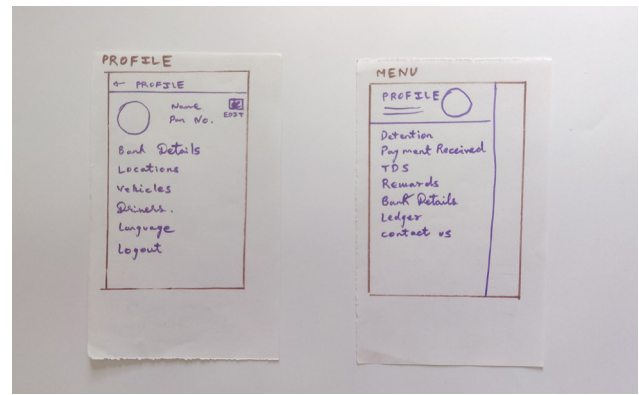 PROFILE
← PROFILE
Name
Pan No.
EDIT
Bank Details
Locations
Vehicles
Drivers.
Language
Logout
MENU
PROFILE
Detention
Payment Received
TDS
Rewards
Bank Details
Ledger
contact us